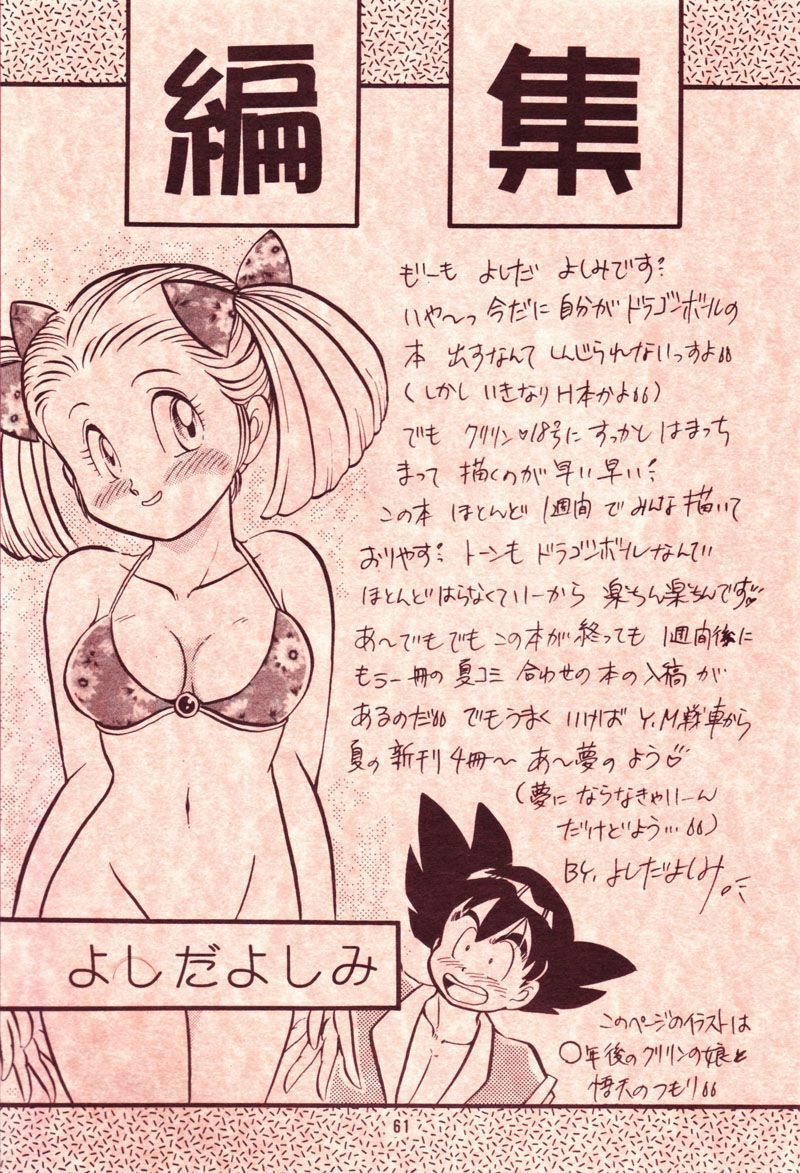 編集
もーも よしだ よしみです!
いや〜っ 今だに 自分が ドラゴンボールの
本 出すなんて しんじられないっすよ
(しかし いきなり H本かよ)
でも クリリン♡18号に すっかと はまっち
まって 描くのが 早い早い!
この本 ほとんど 1週間 で みんな 描いて
おりやす! トーンも ドラゴンボールなんてい
ほとんどはらなくていーから 楽ちん楽ちんです♡
あ〜でもでも この本が 終っても 1週間後に
もう一冊の 夏コミ 合わせの 本の 入稿 が
あるのだ でもうまく いけば Y.M戦車から
夏の 新刊 4冊〜 あ〜夢の よう♡
(夢に ならなきゃいーん
だけどよう…)
BY, よしだよしみ
よしだよしみ
このページのイラストは
○年後のクリリンの娘と
悟天のつもり
61